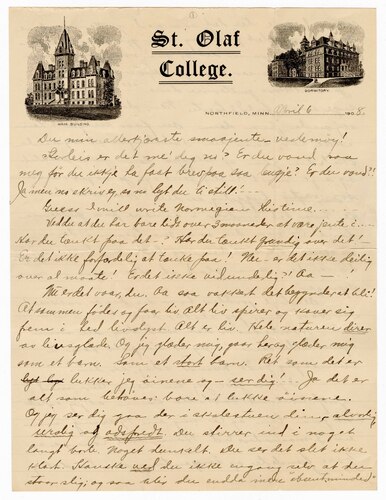 ①
St. Olaf
College.
MAIN BUILDING
DORMITORY
NORTHFIELD, MINN. April 6 1908.
Du min allerkjæreste smaajente
Hvorleis er det me' deg no? Er du vond paa
mig for du ikkje ha faat brev paa saa længe? Er du vond?!
Ja men no skriver, so no lyt du ti still!...
Guess I will write Norwegian
Ved du at du har bare lidt over 3 maaneder at vare jente i...
Har du tænkt paa det? Har du tænkt grundig over det!
Er det ikke forfærdelig at tænke paa! Nei - er det ikke deilig
over al maate! Er det ikke vidunderlig?! Aa —
Nu er det vaar, du. Aa saa vakkert det begynder at bli!
Alt sammen fødes og faar liv. Alt liv spirer og
frem i livslyst. Alt er liv. Hele naturen dirrer
av livsglæde. Og jeg glæder mig, gaar her og glæder mig
som et barn. Som et stort barn. Ret som det er
lukker jeg øinene og — ser dig... Ja det er
alt som behøves: bare at lukke øinene.
Og jeg ser dig gaa der i skolestuen din, alvorlig
urolig og adspredt. Du stirrer ind i noget
langt borte. Noget dunkelt. Du ser det slet ikke
klart. Kanske ved du ikke engang selv at du
staar slig; og saa blir du endda mere absentminded